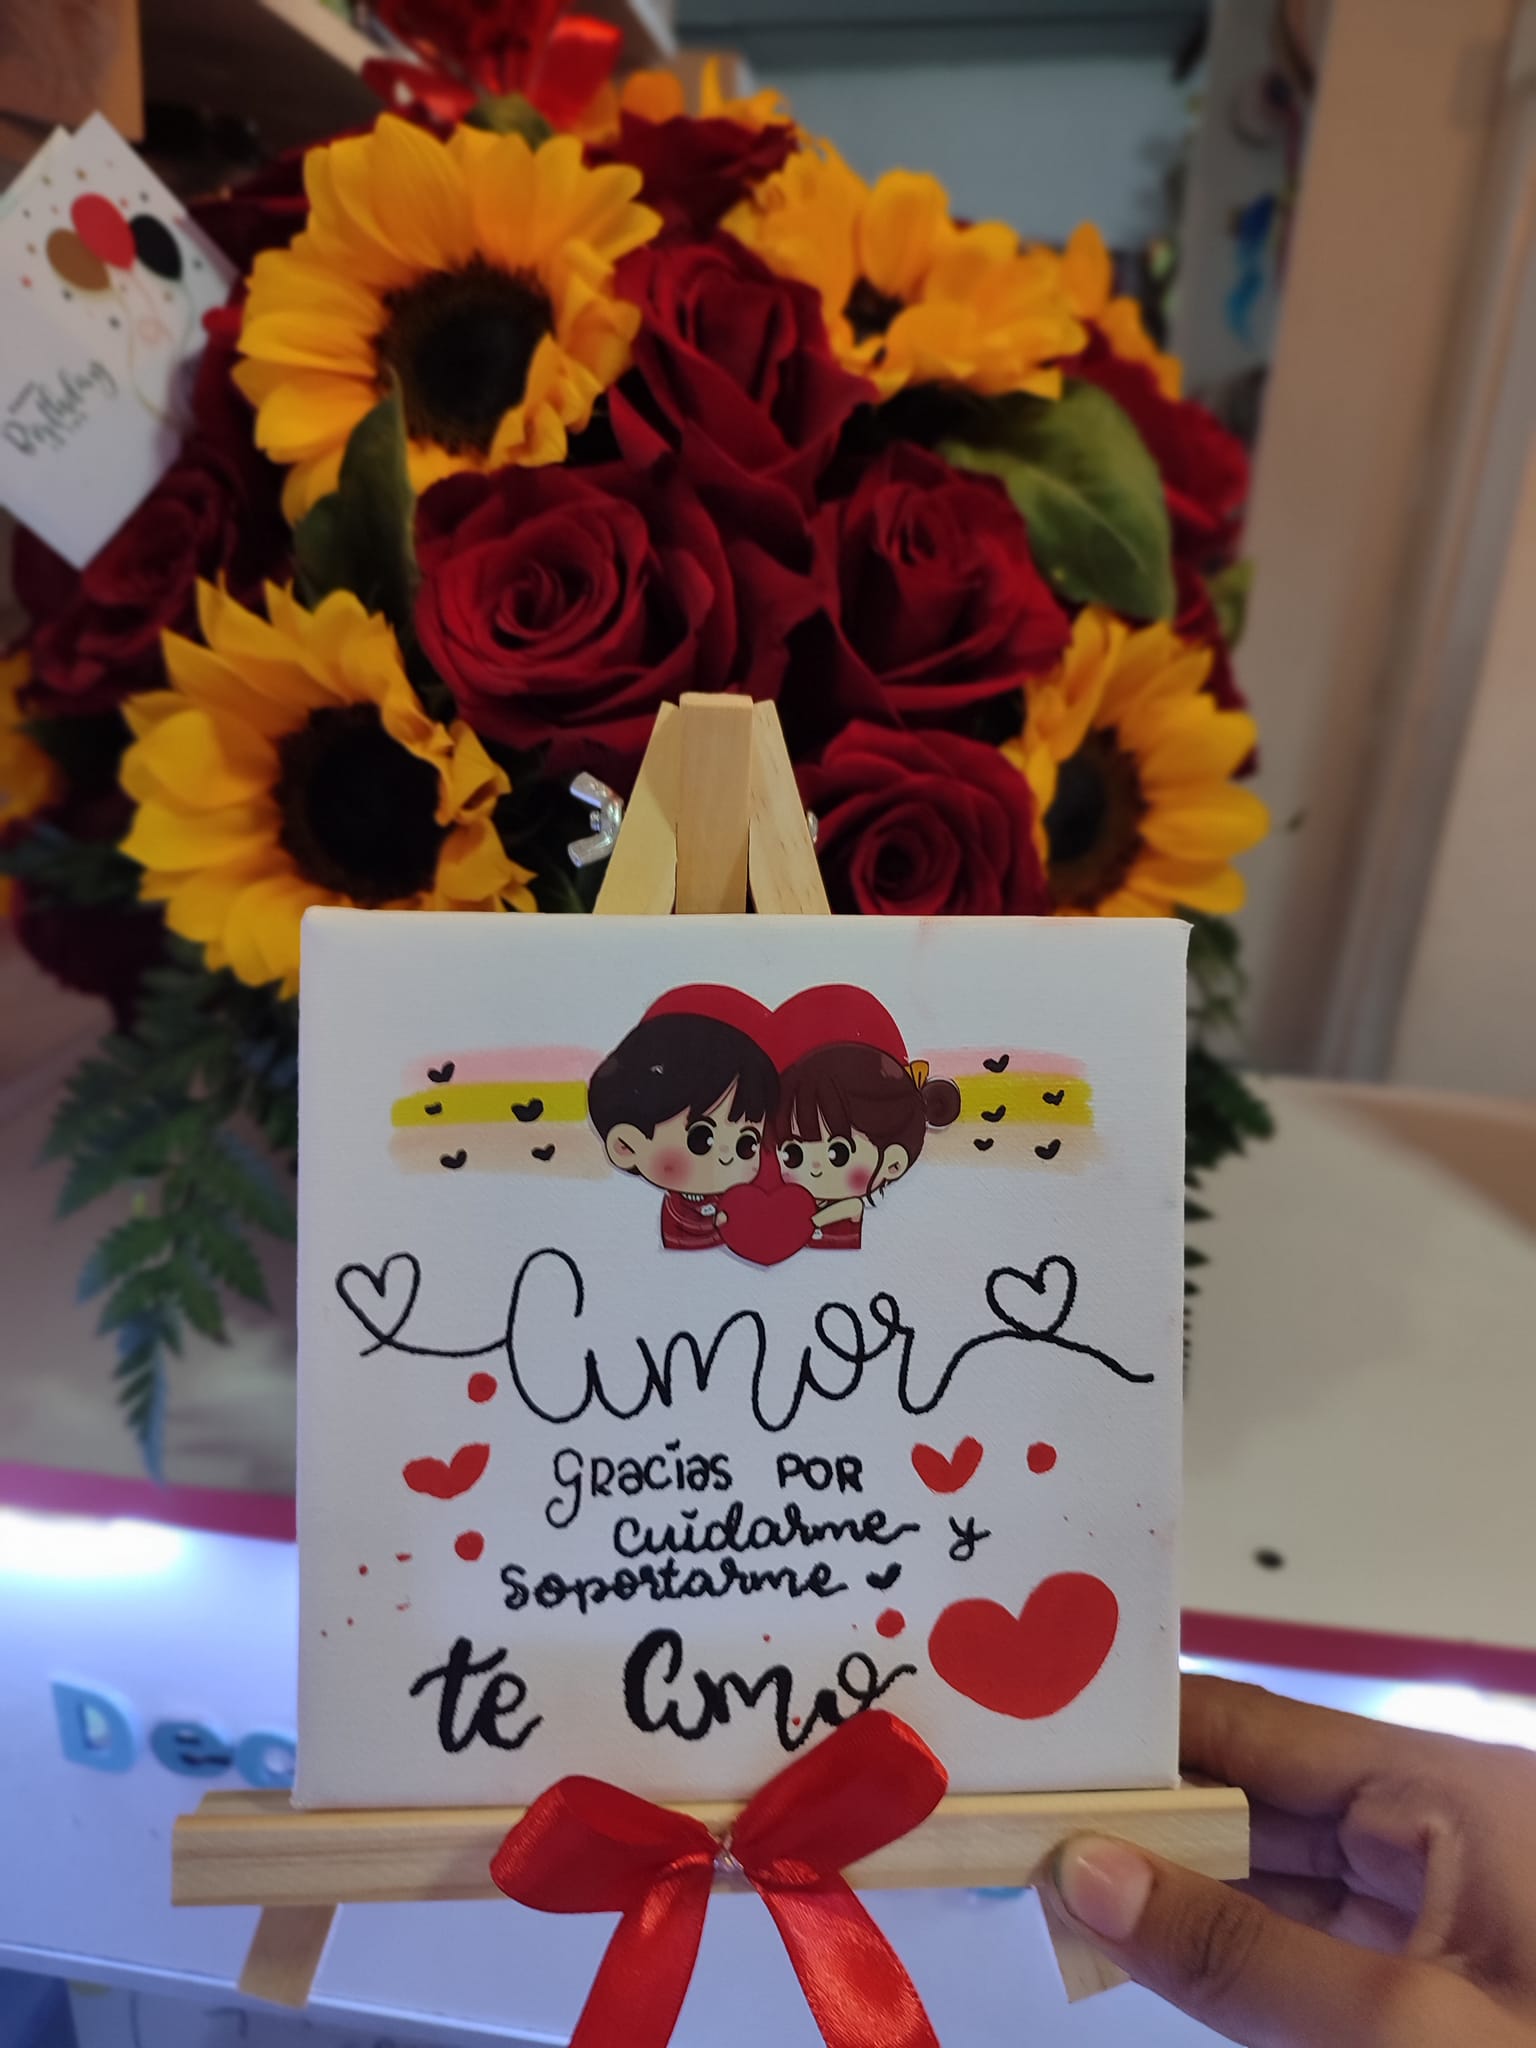 Birthday
Amor
gracias por
cuidarme y
soportarme
te amo